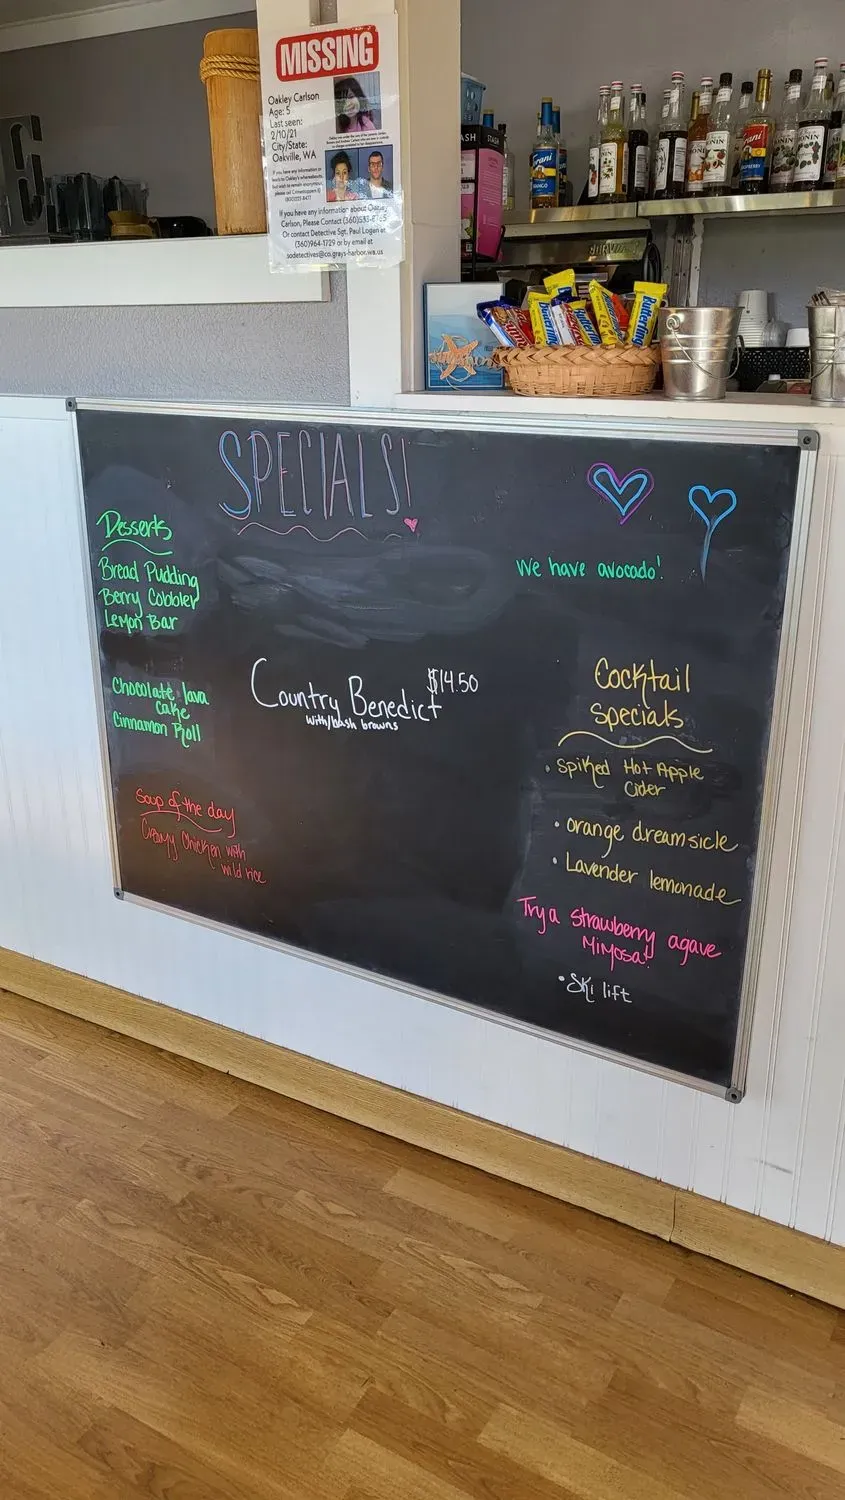 MISSING
Oakley Carlson
Age: 5
Last seen:
2/10/21
City/State:
Oakville, WA
If you have any information about Oakley
Carlson, Please Contact
Or contact Detective Sgt. Paul Logan at
(360)964-1729 or by email at
sodetectives@co.grays-harbor.wa.us
SPECIALS!
Desserts
Bread Pudding
Berry Cobbler
Lemon Bar
Chocolate lava
cake
Cinnamon Roll
Soup of the day
Creamy Chicken with
wild rice
Country Benedict $14.50
with/hash browns
We have avocado!
Cocktail
Specials
• Spiked Hot Apple
Cider
• orange dreamsicle
• Lavender lemonade
Try a strawberry agave
Mimosa!
• Ski lift
Butterfinger